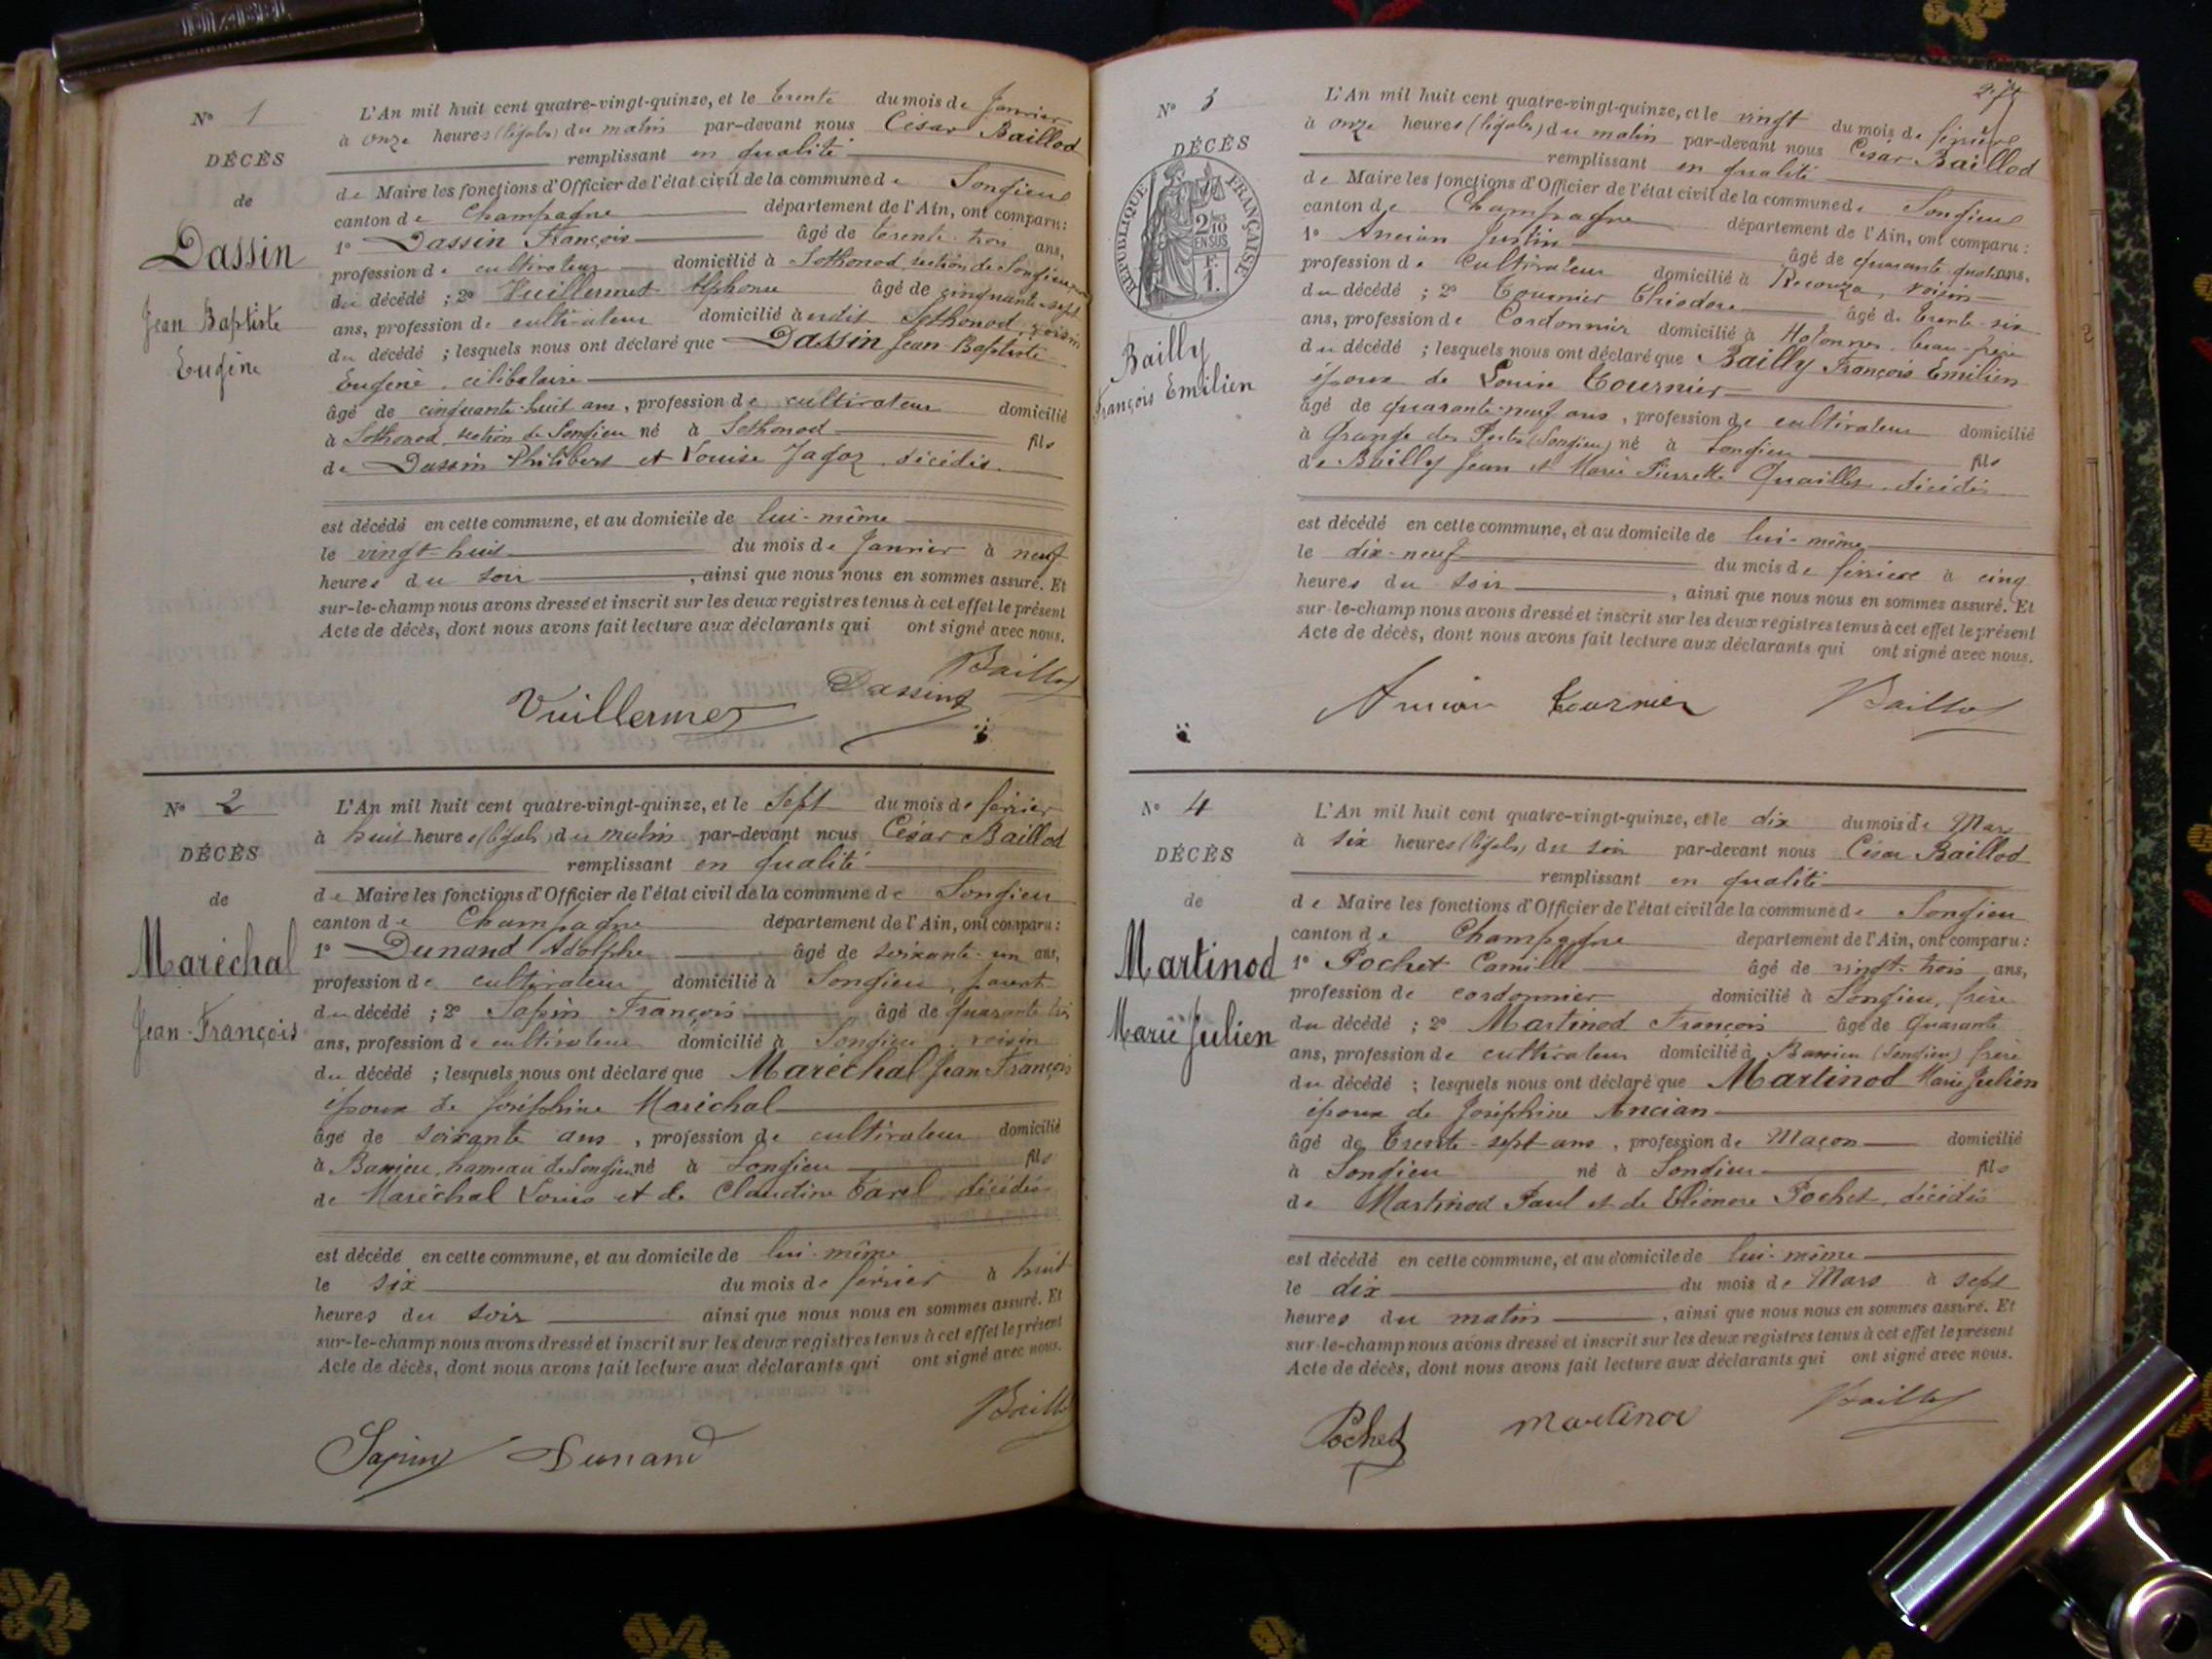 Nº 1
DÉCÈS
de
Dassin
Jean Baptiste
Eugène
L'An mil huit cent quatre-vingt-quinze, et le trente du mois de Janvier
à onze heures (légales) du matin par-devant nous César Baillod
remplissant en qualité
de Maire les fonctions d'Officier de l'état civil de la commune de Songieu
canton de Champagne département de l'Ain, ont comparu:
1º Dassin François âgé de trente-trois ans,
profession de cultivateur domicilié à Sothonod, section de Songieu,
du décédé ; 2º Vuillermet Alphonse âgé de cinquante-sept
ans, profession de cultivateur domicilié à Sothonod, voisin
du décédé ; lesquels nous ont déclaré que Dassin Jean-Baptiste
Eugène, célibataire
âgé de cinquante-huit ans, profession de cultivateur domicilié
à Sothonod, section de Songieu né à Sothonod fils
de Dassin Philibert et Louise Jagoz, décédés
est décédé en cette commune, et au domicile de lui-même
le vingt-huit du mois de Janvier à neuf
heures du soir, ainsi que nous nous en sommes assuré. Et
sur-le-champ nous avons dressé et inscrit sur les deux registres tenus à cet effet le présent
Acte de décès, dont nous avons fait lecture aux déclarants qui ont signé avec nous.
Baillod
Vuillermet Dassin
Nº 2
DÉCÈS
de
Maréchal
Jean-François
L'An mil huit cent quatre-vingt-quinze, et le sept du mois de février
à huit heures (légales) du matin par-devant nous César Baillod
remplissant en qualité
de Maire les fonctions d'Officier de l'état civil de la commune de Songieu
canton de Champagne département de l'Ain, ont comparu:
1º Dunand Adolphe âgé de soixante-un ans,
profession de cultivateur domicilié à Songieu, parent
du décédé ; 2º Sapin François âgé de quarante-trois
ans, profession de cultivateur domicilié à Songieu, voisin
du décédé ; lesquels nous ont déclaré que Maréchal Jean François
époux de Joséphine Maréchal
âgé de soixante ans, profession de cultivateur domicilié
à Bassieu, hameau de Songieu né à Songieu fils
de Maréchal Louis et de Claudine Tarel, décédés
est décédé en cette commune, et au domicile de lui-même
le six du mois de février à huit
heures du soir ainsi que nous nous en sommes assuré. Et
sur-le-champ nous avons dressé et inscrit sur les deux registres tenus à cet effet le présent
Acte de décès, dont nous avons fait lecture aux déclarants qui ont signé avec nous.
Baillod
Sapin Dunand
Nº 3
DÉCÈS
RÉPUBLIQUE FRANÇAISE
2/10
EN SUS
Bailly
François Emilien
L'An mil huit cent quatre-vingt-quinze, et le vingt du mois de février
à onze heures (légales) du matin par-devant nous César Baillod
remplissant en qualité
de Maire les fonctions d'Officier de l'état civil de la commune de Songieu
canton de Champagne département de l'Ain, ont comparu:
1º Ancian Justin âgé de quarante-quatre ans,
profession de cultivateur domicilié à voisin
du décédé ; 2º Tournier Théodore âgé de trente-six
ans, profession de Cordonnier domicilié à Hotonnes, beau-frère
du décédé ; lesquels nous ont déclaré que Bailly François Emilien
époux de Louise Tournier
âgé de quarante-neuf ans, profession de cultivateur domicilié
à Grange des (Songieu) né à Songieu fils
de Bailly Jean et Marie Pierrette décédés
est décédé en cette commune, et au domicile de lui-même
le dix-neuf du mois de février à cinq
heures du soir, ainsi que nous nous en sommes assuré. Et
sur-le-champ nous avons dressé et inscrit sur les deux registres tenus à cet effet le présent
Acte de décès, dont nous avons fait lecture aux déclarants qui ont signé avec nous.
Ancian Tournier Baillod
Nº 4
DÉCÈS
de
Martinod
Marie Julien
L'An mil huit cent quatre-vingt-quinze, et le dix du mois de Mars
à six heures (légales) du soir par-devant nous César Baillod
remplissant en qualité
de Maire les fonctions d'Officier de l'état civil de la commune de Songieu
canton de Champagne département de l'Ain, ont comparu:
1º Pochet Camille âgé de vingt-trois ans,
profession de cordonnier domicilié à Songieu, frère
du décédé ; 2º Martinod François âgé de Quarante
ans, profession de cultivateur domicilié à Bassieu (Songieu) frère
du décédé ; lesquels nous ont déclaré que Martinod Marie Julien
époux de Joséphine Ancian
âgé de trente-sept ans, profession de Maçon domicilié
à Songieu né à Songieu fils
de Martinod Paul et de Eléonore Pochet, décédés
est décédé en cette commune, et au domicile de lui-même
le dix du mois de Mars à sept
heures du matin, ainsi que nous nous en sommes assuré. Et
sur-le-champ nous avons dressé et inscrit sur les deux registres tenus à cet effet le présent
Acte de décès, dont nous avons fait lecture aux déclarants qui ont signé avec nous.
Pochet Martinod Baillod